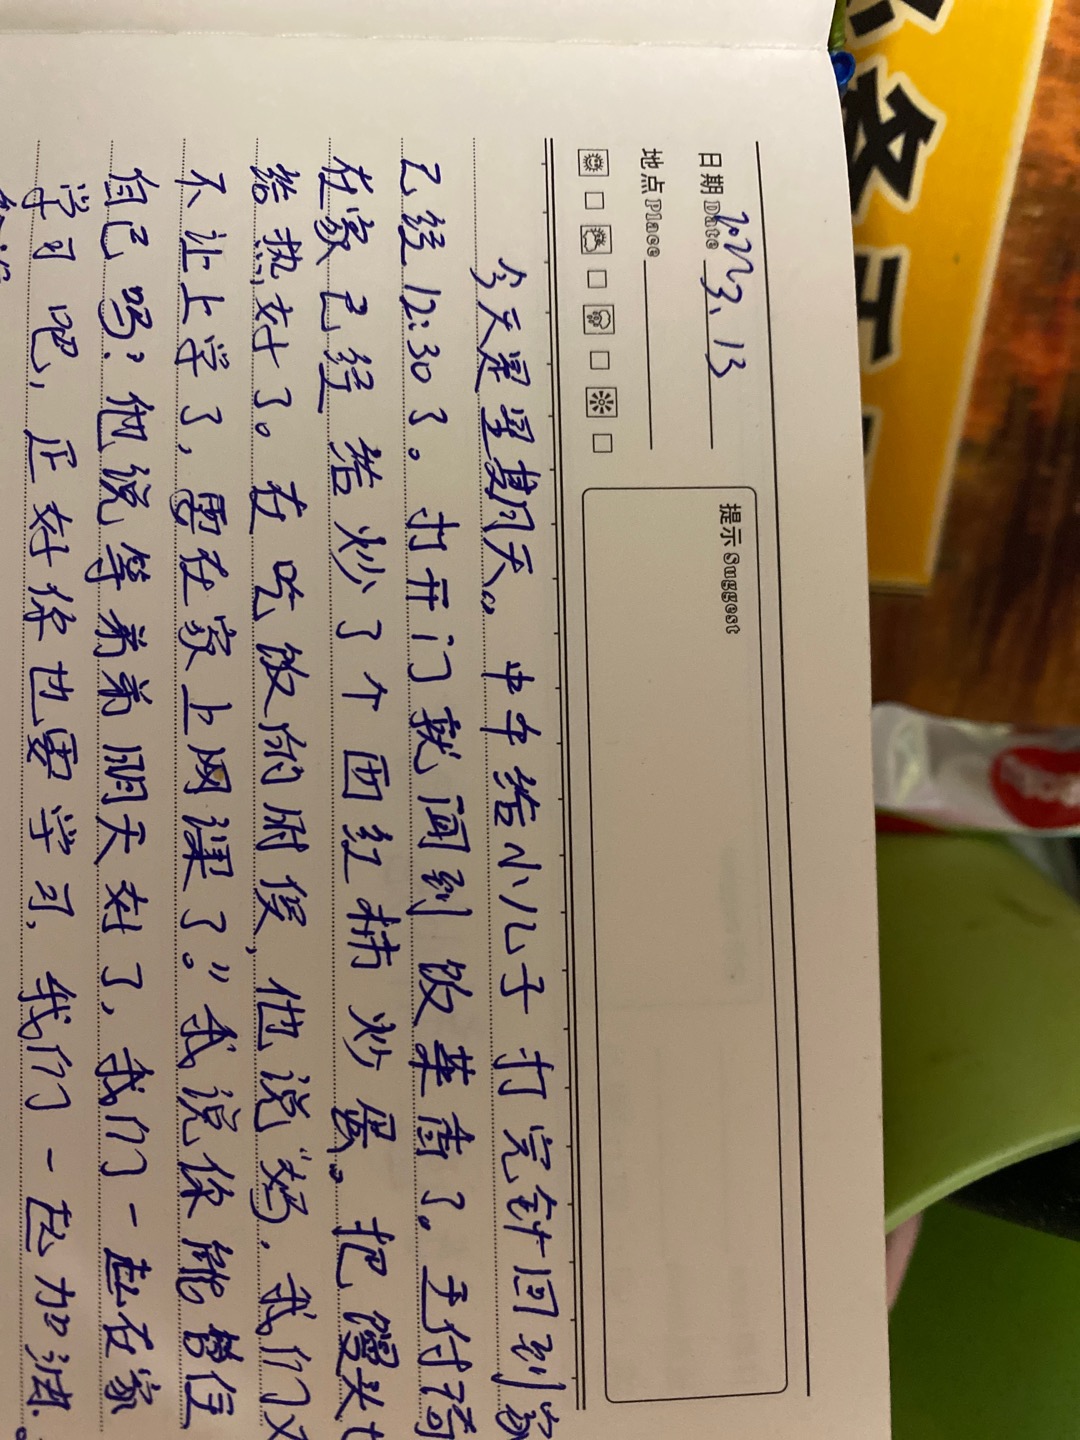 日期 Date 2022.3.13
地点 Place
提示 Suggest
今天是星期天。中午给小儿子打完针回到家
已经12:30了。打开门就闻到饭菜香了。王付琦
在家已经给炒了个西红柿炒蛋。把馒头也
给热好了。在吃饭的时候,他说“妈,我们又
不让上学了,要在家上网课了。”我说你能管住
自己吗?他说等弟弟明天好了,我们一起在家
学习吧,正好你也要学习,我们一起加油。